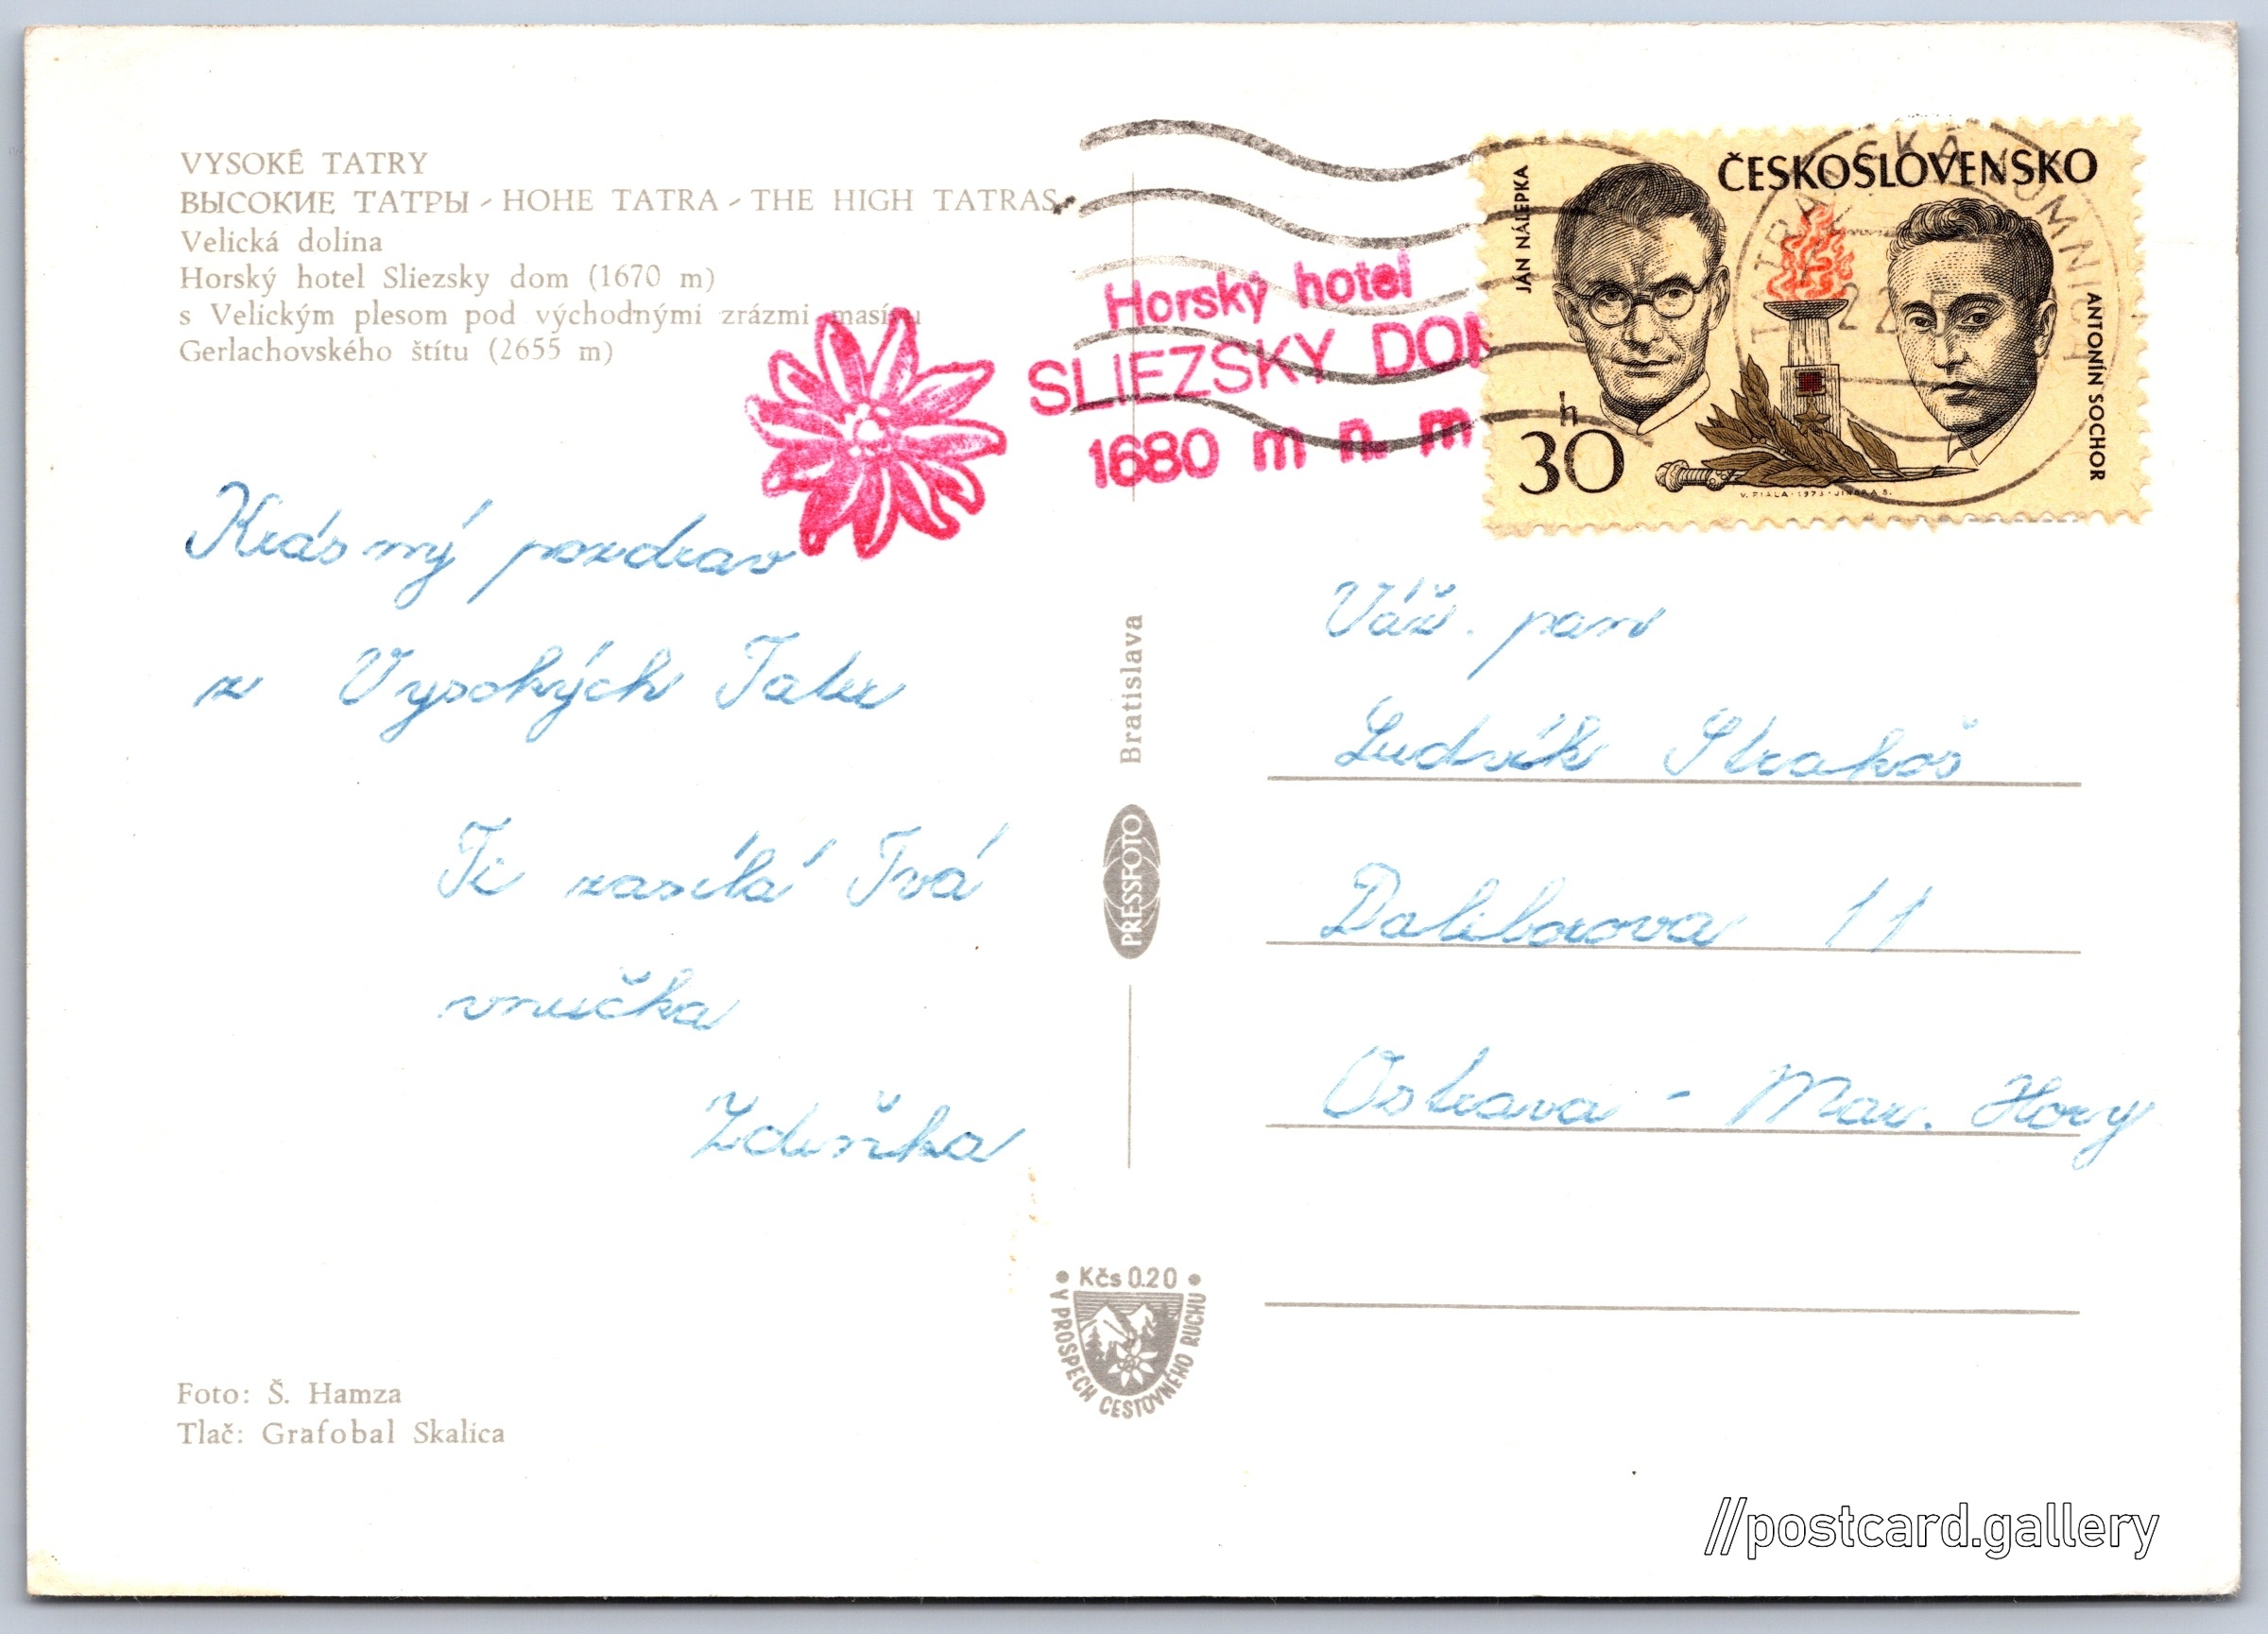 VYSOKÉ TATRY
ВЫСОКИЕ ТАТРЫ - HOHE TATRA - THE HIGH TATRAS
Velická dolina
Horský hotel Sliezsky dom (1670 m)
s Velickým plesom pod východnými zrázmi masívu
Gerlachovského štítu (2655 m)
Horský hotel
SLIEZSKY DOM
1680 m n. m
ČESKOSLOVENSKO
JÁN NÁLEPKA
ANTONÍN SOCHOR
30 h
V. FIALA · 1973 · JINDRA S.
TATRANSKÁ LOMNICA
Krásný pozdrav
z Vysokých Tater
Ti zasílá Tvá
vnučka
Zdeňka
Bratislava
PRESSFOTO
Váž. pan
Ludvík Strakoš
Daliborova 11
Ostrava - Mar. Hory
• Kčs 0.20 •
V PROSPECH CESTOVNÉHO RUCHU
Foto: Š. Hamza
Tlač: Grafobal Skalica
//postcard.gallery